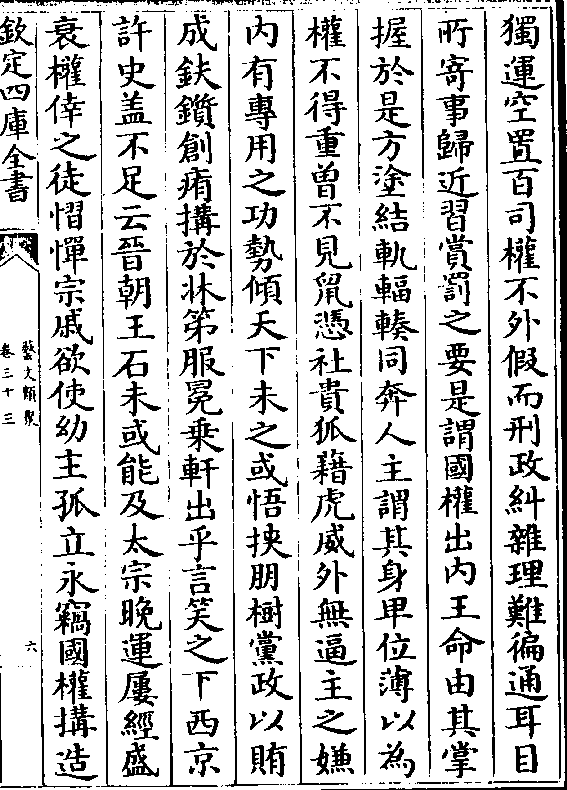 獨運空置百司權不外假而刑政糾雜理難徧通耳目
所寄事歸近習賞罰之要是謂國權出内王命由其掌
握於是方塗結軌輻輳同奔人主謂其身卑位薄以為
權不得重曽不見鼠憑社貴狐藉虎威外無逼主之嫌
内有專用之功勢傾天下未之或悟挟朋樹黨政以賄
成鈇鑕創痏搆於牀第服冕乗軒出乎言笑之下西京
許史盖不足云晉朝王石未或能及太宗晚運屢經盛
衰權倖之徒慴憚宗戚欲使幼主孤立永竊國權搆造
欽定四庫全書
藝文類聚
卷三十三
六